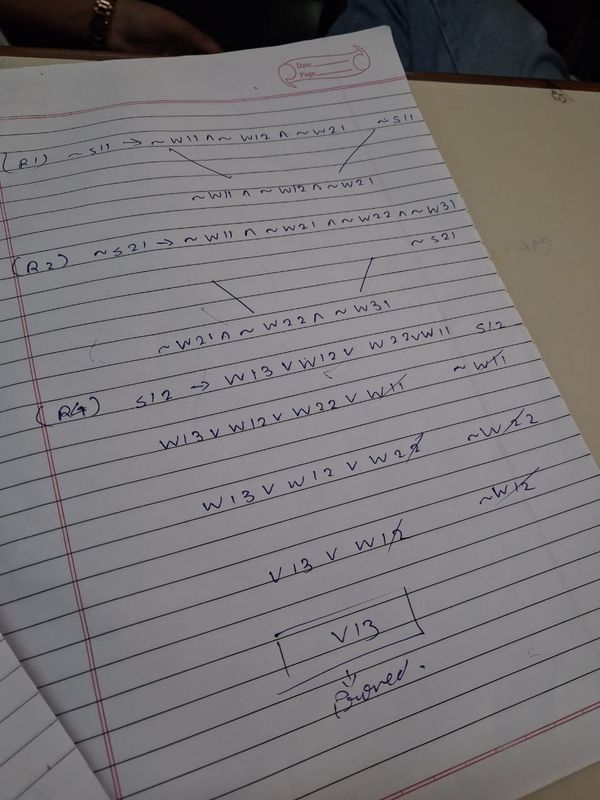 Date
Page
(R1) ~S11 → ~W11 ∧ ~W12 ∧ ~W21 ~S11
~W11 ∧ ~W12 ∧ ~W21
(R2) ~S21 → ~W11 ∧ ~W21 ∧ ~W22 ∧ ~W31
~S21
~W21 ∧ ~W22 ∧ ~W31
(R4) S12 → W13 ∨ W12 ∨ W22 ∨ W11 S12
W13 ∨ W12 ∨ W22 ∨ W11 ~W11
W13 ∨ W12 ∨ W22 ~W22
V13 ∨ W12 ~W12
V13
Proved.